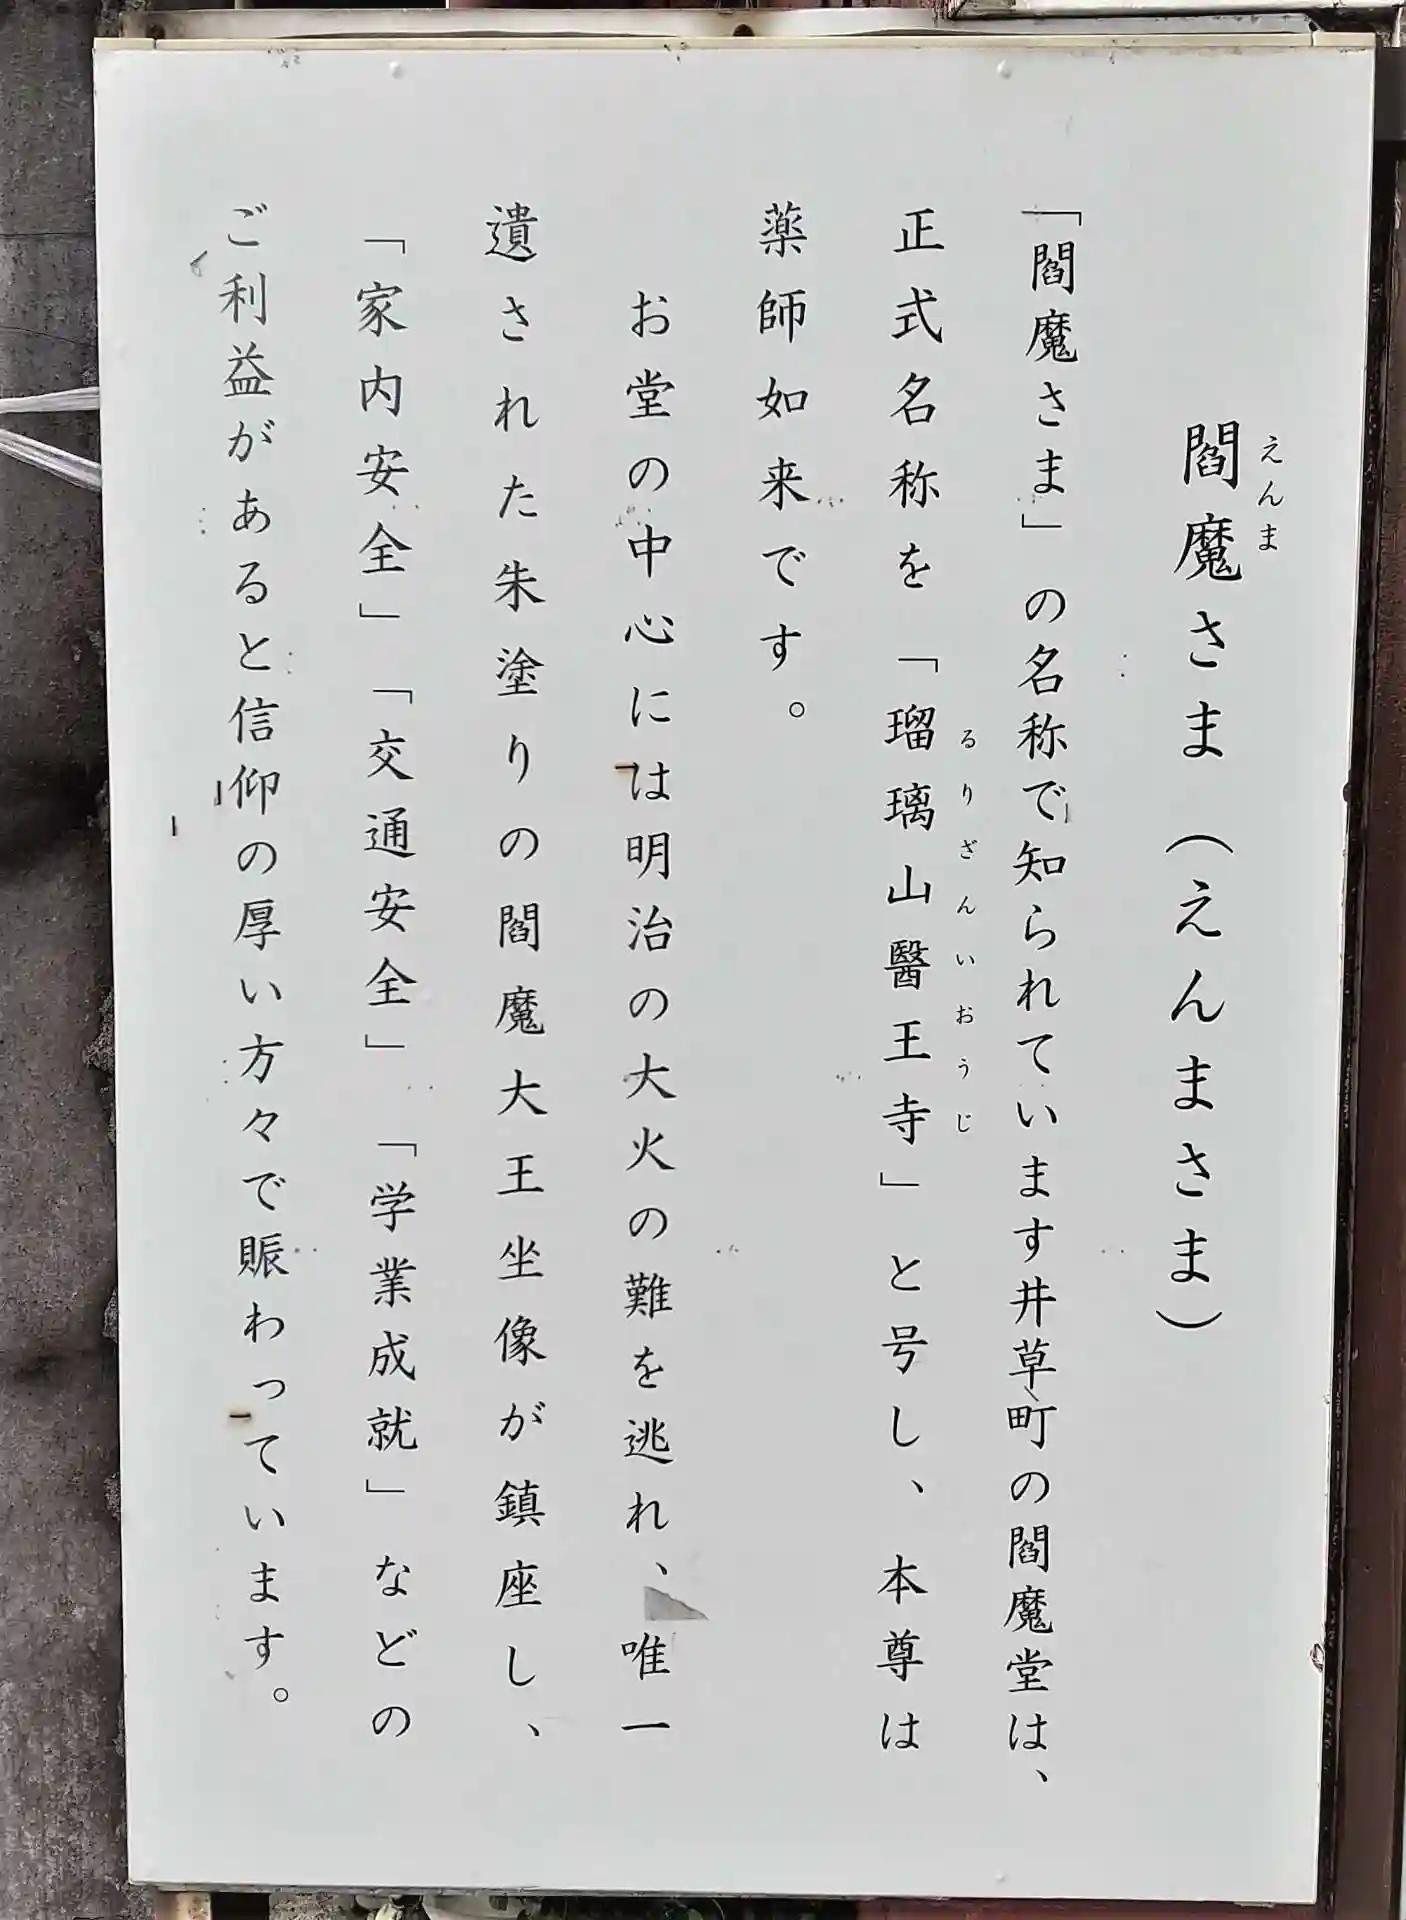 閻魔さま（えんまさま）
えんま
「閻魔さま」の名称で知られています井草町の閻魔堂は、
正式名称を「瑠璃山醫王寺」と号し、本尊は
るりざんいおうじ
薬師如来です。
お堂の中心には明治の大火の難を逃れ、唯一
遺された朱塗りの閻魔大王坐像が鎮座し、
「家内安全」「交通安全」「学業成就」などの
ご利益があると信仰の厚い方々で賑わっています。